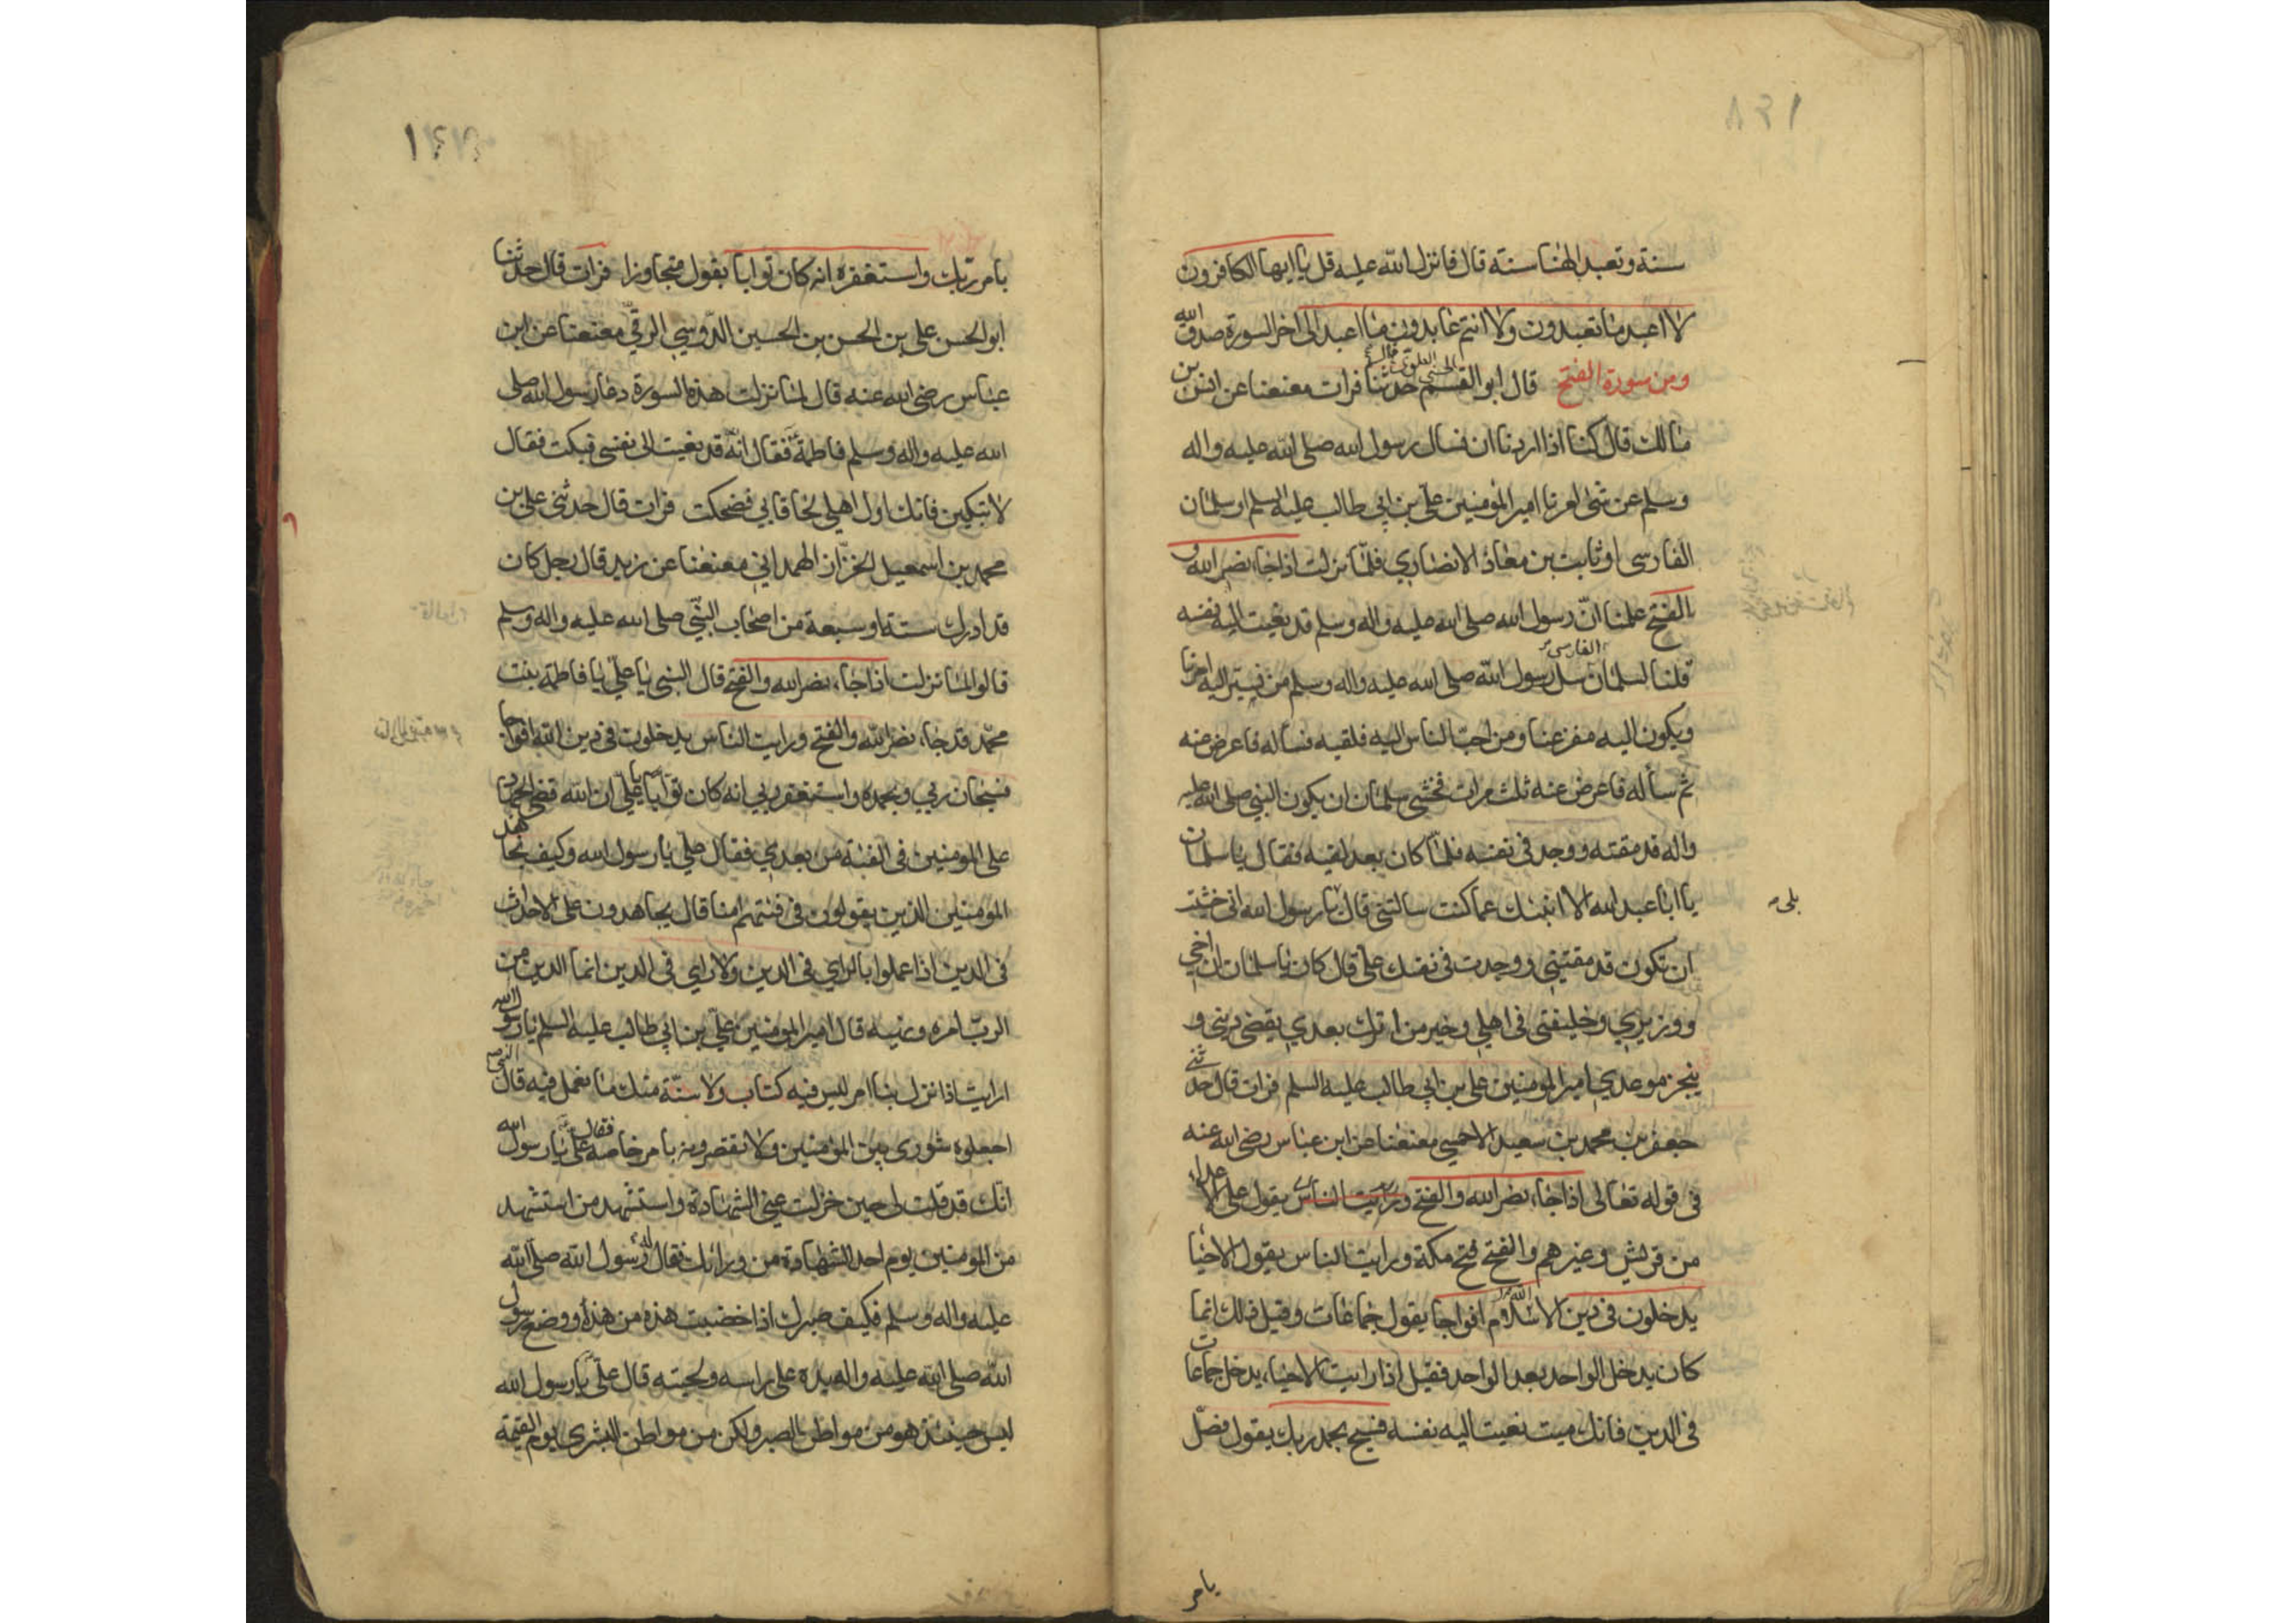 سنة وتعبد الهنا سنة قال فانزل الله عليه قل يا ايها الكافرون
لا اعبد ما تعبدون ولا انتم عابدون ما اعبد الى اخر السورة صدق الله
ومن سورة الفتح قال ابو القسم الحسنى العلوى قال حدثنا فرات معنعنا عن انس بن
مالك قال كنا اذا اردنا ان نسال رسول الله صلى الله عليه واله
وسلم عن شئ امرنا امير المؤمنين علي بن ابي طالب عليه السلم او سلمان
الفارسى او ثابت بن معاذ الانصاري فلما نزلت اذا جاء نصر الله و
الفتح علمنا ان رسول الله صلى الله عليه واله وسلم قد نعيت اليه نفسه
قلنا لسلمان الفارسى سل رسول الله صلى الله عليه واله وسلم من نسير اليه امرنا
ويكون اليه مفزعنا ومن احب الناس اليه فلقيه فساله فاعرض عنه
ثم سأله فاعرض عنه ثلث مرات فخشى سلمان ان يكون النبي صلى الله عليه
واله قد مقته ووجد فى نفسه فلما كان بعد لقيه فقال يا سلمان
يا ابا عبد الله الا انبئك عما كنت سالتنى قال يا رسول الله انى خشيت
بلى
ان تكون قد مقتني ووجدت فى نفسك على قال كان يا سلمان ان اخي
ووزيري وخليفتى فى اهلي وخير من اترك بعدي يقضى ديني و
ينجز موعدي امير المومنين على بن ابي طالب عليه السلم فرات قال حدثنى
جعفر بن محمد بن سعيد الاحمسي معنعنا عن ابن عباس رضى الله عنه
فى قوله تعالى اذا جاء نصر الله والفتح ورايت الناس يقول على الاعداء
من قريش وغيرهم والفتح فتح مكة ورايت الناس يقول الاحيا
يدخلون فى دين الله الاسلام افواجا يقول جماعات وقيل ذلك انما
كان يدخل الواحد بعد الواحد فقيل اذا رايت الاحياء يدخل جماعات
فى الدين فانك ميت نعيت اليه نفسه فسبح بحمد ربك يقول فصل
بامر
بامر ربك واستغفره انه كان توابا يقول متجاوزا فرات قال حدثنا
ابو الحسن على بن الحسن بن الحسين الدوسي الرقي معنعنا عن ابن
عباس رضى الله عنه قال لما نزلت هذه السورة دعا رسول الله صلى
الله عليه واله وسلم فاطمة فقال انه قد نعيت الى نفسى فبكت فقال
لا تبكين فانك اول اهلي لحاقا بي فضحكت فرات قال حدثنى على بن
محمد بن اسمعيل الخزاز الهمداني معنعنا عن زيد قال رجل كان
قد ادرك ستة او سبعة من اصحاب النبي صلى الله عليه واله وسلم
قالوا لما نزلت اذا جاء نصر الله والفتح قال النبى يا علي يا فاطمة بنت
محمد قد جاء نصر الله والفتح ورايت الناس يدخلون فى دين الله افواجا
فسبحان ربي وبحمده واستغفر ربي انه كان توابا يا علي ان الله قضى الجهاد
على المومنين فى الفتنة من بعدي فقال علي يا رسول الله وكيف نجاهد
المومنين الذين يقولون فى فتنتهم امنا قال يجاهدون على الاحداث
فى الدين اذا عملوا بالراي فى الدين ولا راي فى الدين انما الدين من
الرب امره ونهيه قال امير المومنين علي بن ابي طالب عليه السلم يا رسول الله
ارايت اذا نزل بنا امر ليس فيه كتاب ولا سنة منك ما نعمل فيه قال النبى
اجعلوه شورى بين المؤمنين ولا تقصرونه بامر خاصة فقال على يا رسول الله
انك قد قلت لى حين خزلت عني الشهادة واستشهد من استشهد
من المومنين يوم احد الشهادة من ورائك فقال رسول الله صلى الله
عليه واله وسلم فكيف صبرك اذا خضبت هذه من هذه ووضع رسول
الله صلى الله عليه واله يده على راسه ولحيته قال على يا رسول الله
ليس حينئذ هو من مواطن الصبر ولكن من مواطن البشرى يوم القيمة